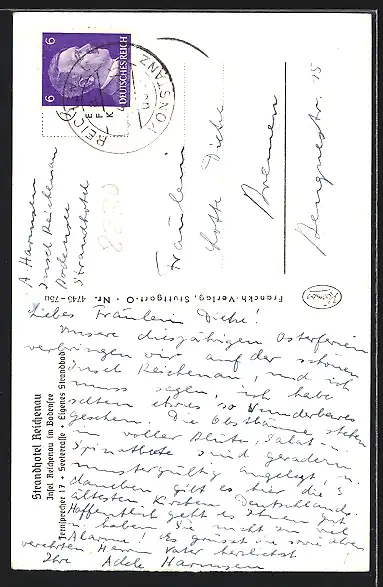 6 DEUTSCHES REICH 6
REICHENAU
KONSTANZ
A Harmsen
Insel Reichenau
Bodensee
Strandhotel
Fräulein
Lotte Dieke
Bremen
15
Franckh-Verlag, Stuttgart-O · Nr. 4745-75u
Kosmos
Strandhotel Reichenau
Insel Reichenau im Bodensee
Fernsprecher 17 · Seeterrasse · Eigenes Strandbad
Liebes Fräulein Dieke!
Unsere diesjährigen Osterferien
verbringen wir auf der schönen
Insel Reichenau, und ich
muss sagen, ich habe
selten etwas so Wunderbares
gesehen. Die Obstbäume stehen
in voller Blüte, Salat u.
Spinatbeete sind geradezu
mustergültig angelegt, u.
daneben gibt es hier die 3
ältesten Kirchen Deutschlands.
Hoffentlich geht es Ihnen gut
u. haben Sie nicht zu viel
Alarme! Es grüsst Sie sowie Ihren
verehrten Herrn Vater herzlichst
Ihre Adele Harmsen